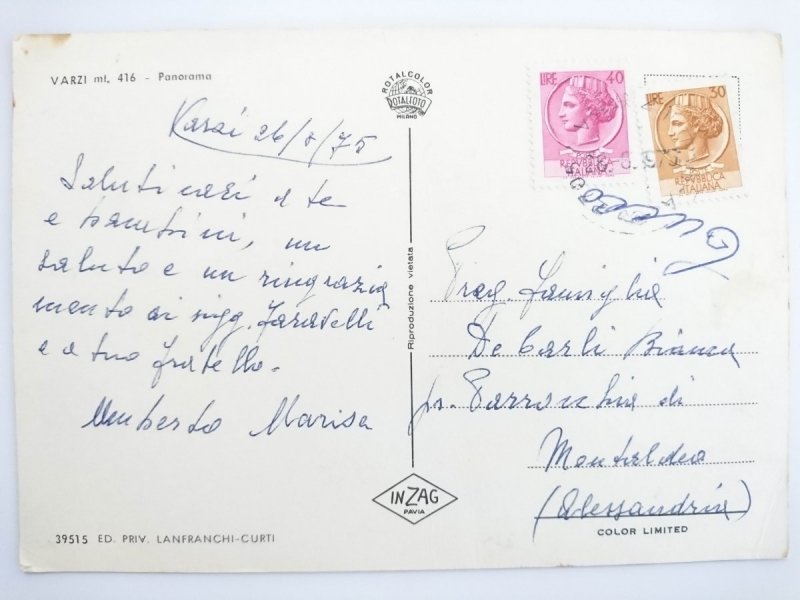 VARZI mt. 416 - Panorama
ROTALCOLOR
ROTALFOTO
MILANO
LIRE 40
REPVBBLICA
ITALIANA
LIRE 30
REPVBBLICA
ITALIANA
Varzi 26/8/75
Saluti cari a te
e bambini, un
saluto e un ringrazia
mento ai sigg. Faravelli
e a tuo fratello.
Umberto Marisa
Riproduzione vietata
Preg. Famiglia
De Carli Bianca
Parrocchia di
Montaldeo
(Alessandria)
INZAG
PAVIA
39515 ED. PRIV. LANFRANCHI-CURTI
COLOR LIMITED